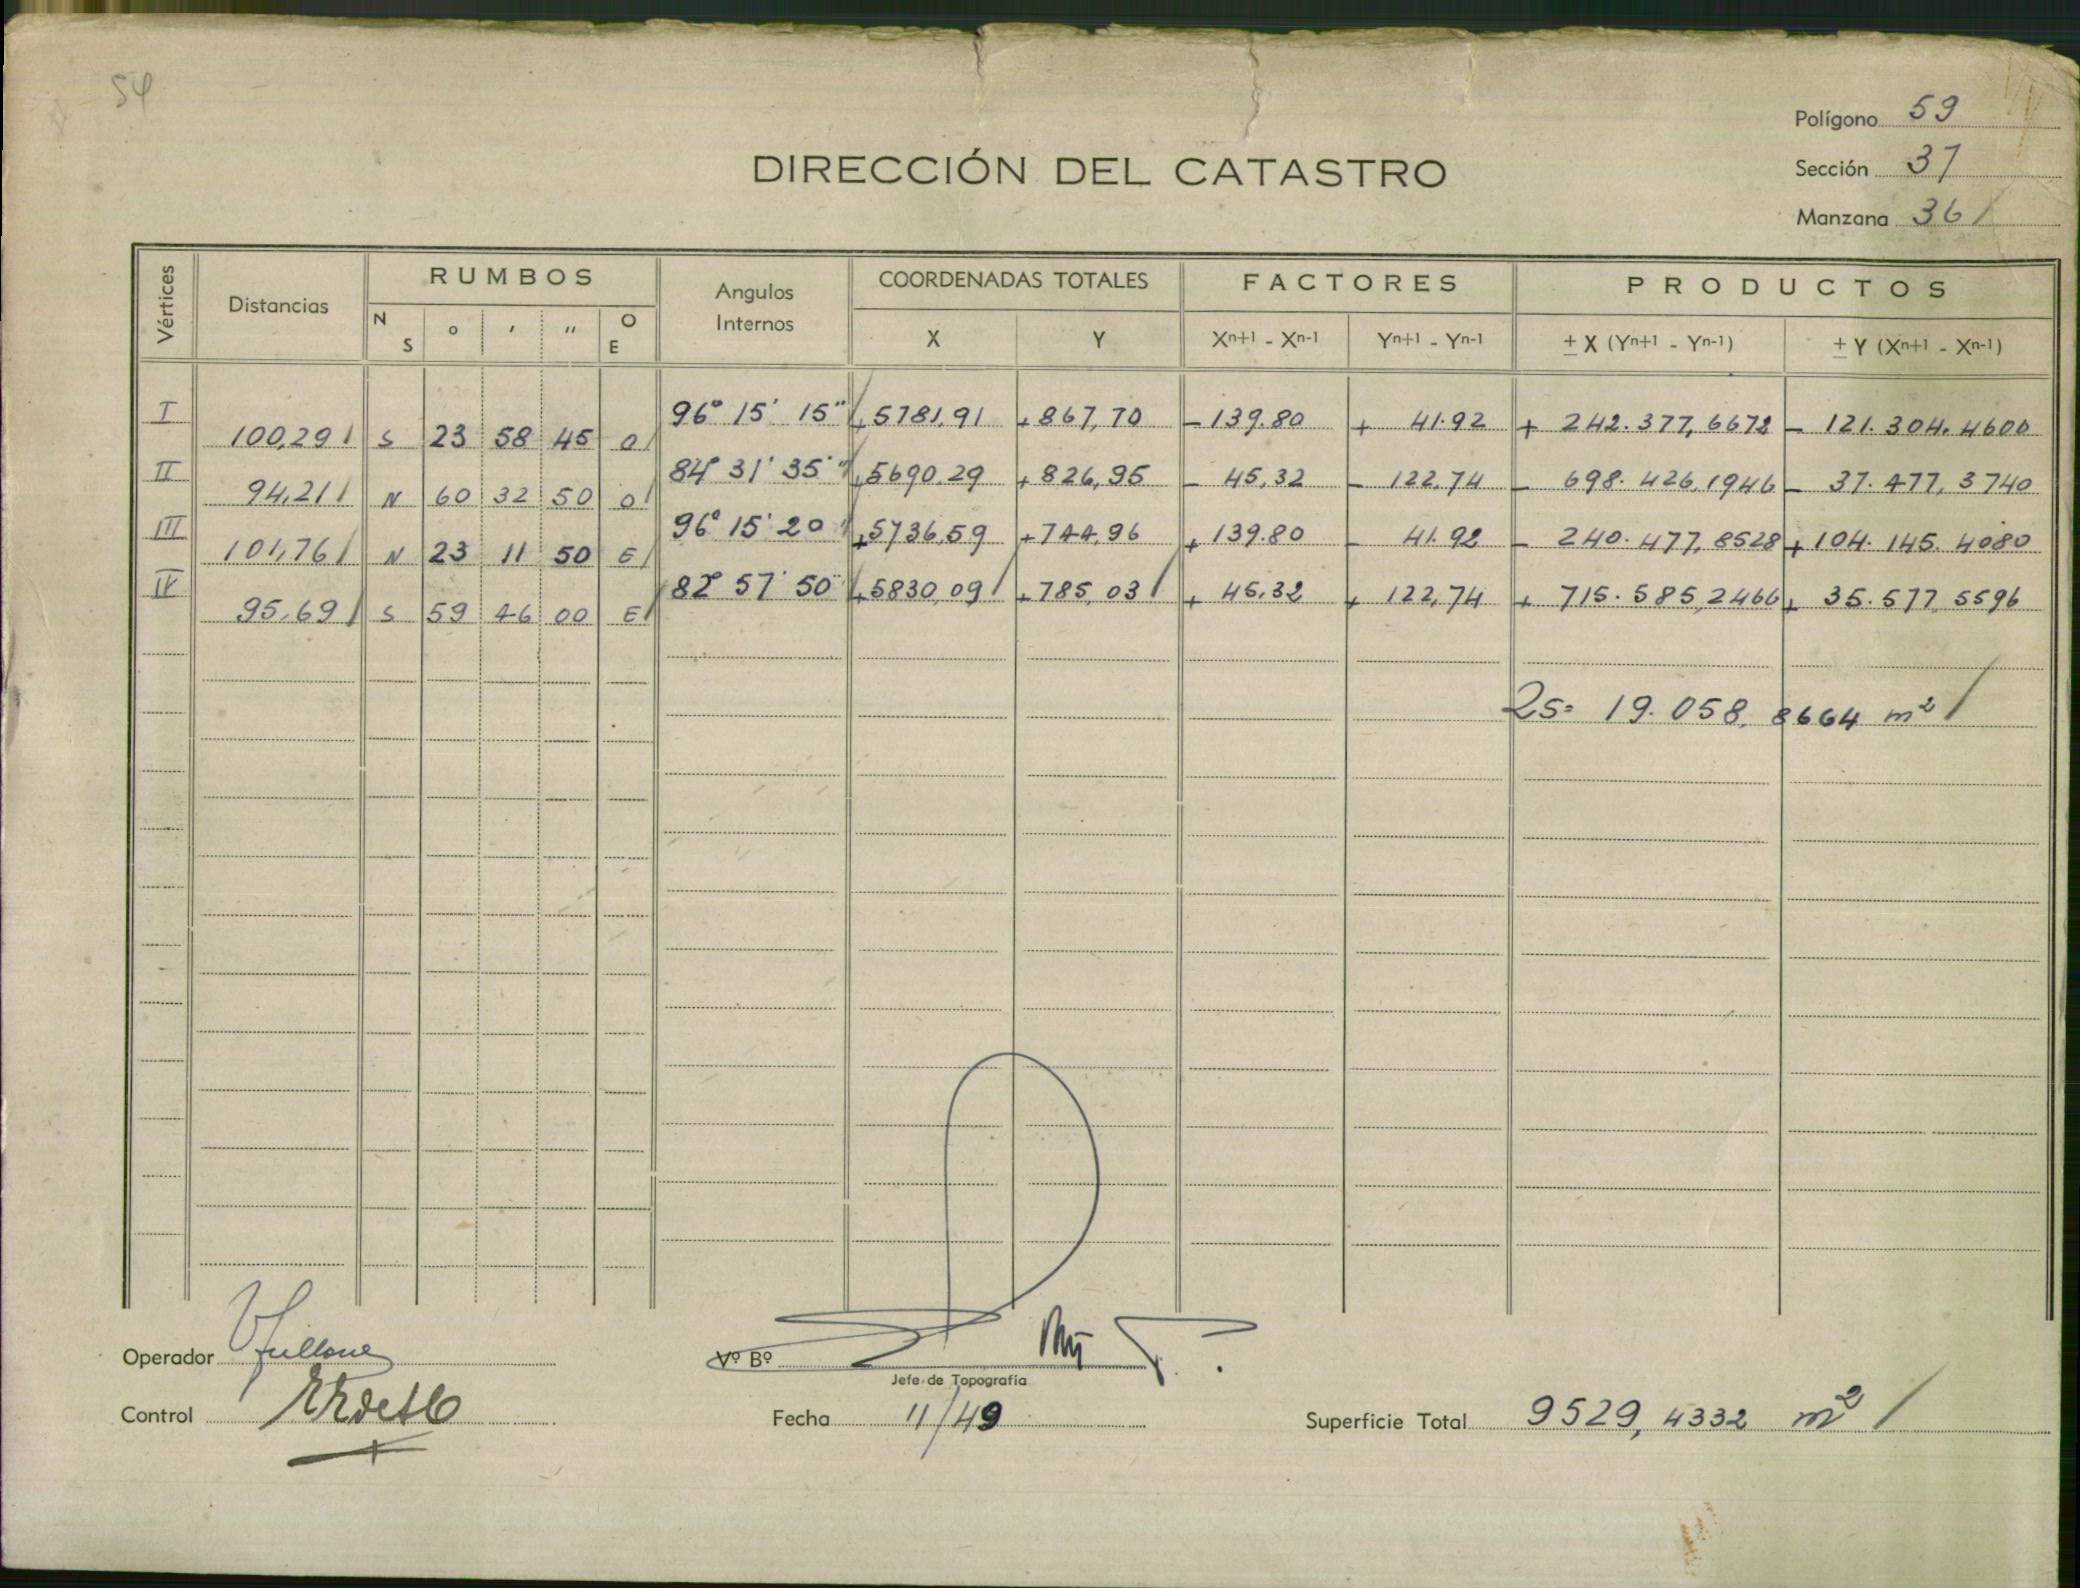 54
Polígono 59
DIRECCIÓN DEL CATASTRO
Sección 37
Manzana 36
Vértices Distancias RUMBOS Angulos Internos COORDENADAS TOTALES FACTORES PRODUCTOS
N S ° ' " O E X Y Xn+1 - Xn-1 Yn+1 - Yn-1 ± X (Yn+1 - Yn-1) ± Y (Xn+1 - Xn-1)
I 96° 15' 15" +5781,91 +867,70 -139.80 + 41.92 + 242.377,6672 - 121.304.4600
100,29 S 23 58 45 O
II 84° 31' 35" +5690.29 +826,95 - 45,32 - 122.74 - 698.426,1946 - 37.477,3740
94,21 N 60 32 50 O
III 96° 15' 20" +5736,59 +744,96 +139.80 - 41.92 - 240.477,8528 +104.145.4080
101,76 N 23 11 50 E
IV 82° 57' 50" +5830,09 +785,03 + 45,32 + 122,74 + 715.585,2466 + 35.577,5596
95,69 S 59 46 00 E
2S= 19.058,8664 m²
Operador
Vº Bº
Jefe de Topografía
Control
Fecha 11/49
Superficie Total 9529,4332 m²